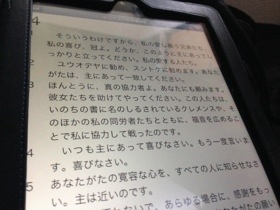 4
そういうわけですから、私の愛し慕う兄弟たち、
私の喜び、冠よ。どうか、このように主にあってし
っかりと立ってください。私の愛する人たち。
ユウオデヤに勧め、スントケに勧めます。あなた
がたは、主にあって一致してください。
ほんとうに、真の協力者よ。あなたにも頼みます。
彼女たちを助けてやってください。この人たちは、
いのちの書に名のしるされているクレメンスや、そ
のほかの私の同労者たちとともに、福音を広めるこ
とで私に協力して戦ったのです。
いつも主にあって喜びなさい。もう一度言いま
す。喜びなさい。
5
あなたがたの寛容な心を、すべての人に知らせなさ
い。主は近いのです。
あらゆる場合に、感謝をもっ